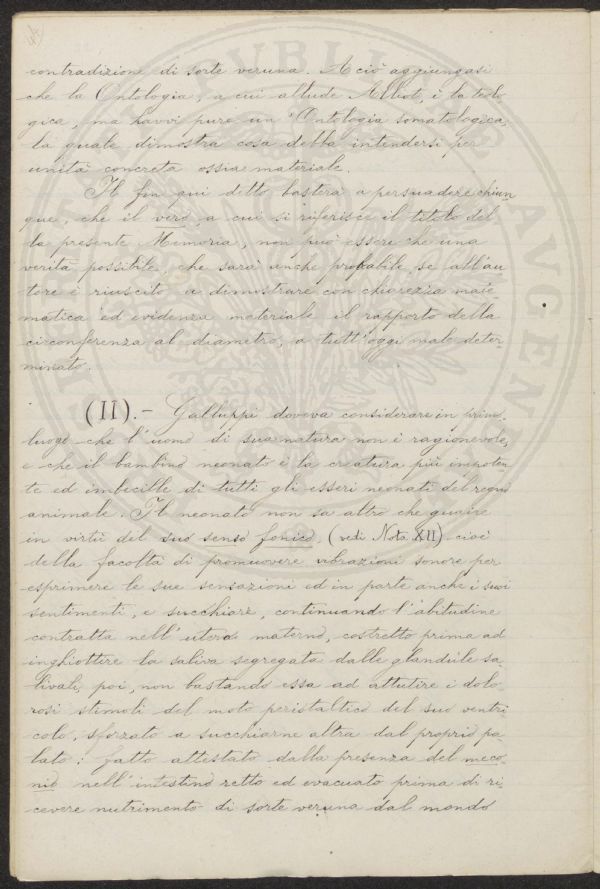 44
contradizione di sorte veruna. A ciò aggiungasi
che la Ontologia, a cui allude Alliot, è la teolo
gica, ma havvi pure un'Ontologia somatologica,
la quale dimostra cosa debba intendersi per
unità concreta ossia materiale.
Il fin qui detto basterà a persuadere chiun
que, che il vero, a cui si riferisce il titolo del
la presente Memoria, non può essere che una
verità possibile, che sarà anche probabile se all'au
tore è riuscito a dimostrare con chiarezza mate
matica ed evidenza materiale il rapporto della
circonferenza al diametro, a tutt'oggi male deter-
minato.
(II).- Galluppi doveva considerare in primo
luogo che l'uomo di sua natura non è ragionevole,
e che il bambino neonato è la creatura più impoten
te ed imbecille di tutti gli esseri neonati del regno
animale. Il neonato non sa altro che guaire
in virtù del suo senso fonico, (vedi Nota XII) cioè
della facoltà di promuovere vibrazioni sonore per
esprimere le sue sensazioni ed in parte anche i suoi
sentimenti, e succhiare, continuando l'abitudine
contratta nell'utero materno, costretto prima ad
inghiottire la saliva segregata dalle glandule sa-
livali, poi, non bastando essa ad attutire i dolo
rosi stimoli del moto peristaltico del suo ventri
colo, sforzato a succhiarne altra dal proprio pa-
lato: fatto attestato dalla presenza del meco-
nio nell'intestino retto ed evacuato prima di ri-
cevere nutrimento di sorte veruna dal mondo